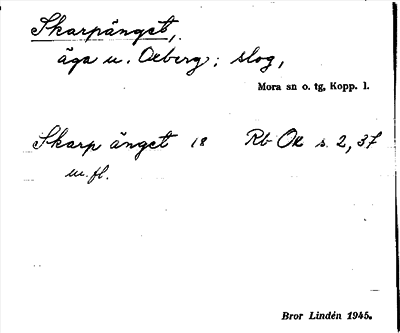 Skarpänget,
äga u. Oeberg; slog,
Mora sn o. tg, Kopp. l.
Skarp änget 18 Rb Oe s. 2, 37
m. fl.
Bror Lindén 1945.